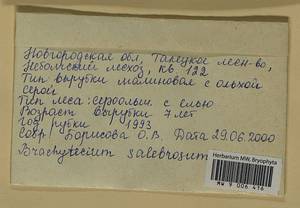 Новгородская обл, Талецкое лен-во,
Небольский лехоз, кв. 122
Тип вырубки малиновая с ольхой
серой
Тип леса: сероольш. с елью
Возраст вырубки 7 лет
Год рубки 1993
Собр. Борисова О.В. Дата 29.06.2000
Brachytecium salebrosum
Herbarium MW, Bryophyta
MW 9 006 416